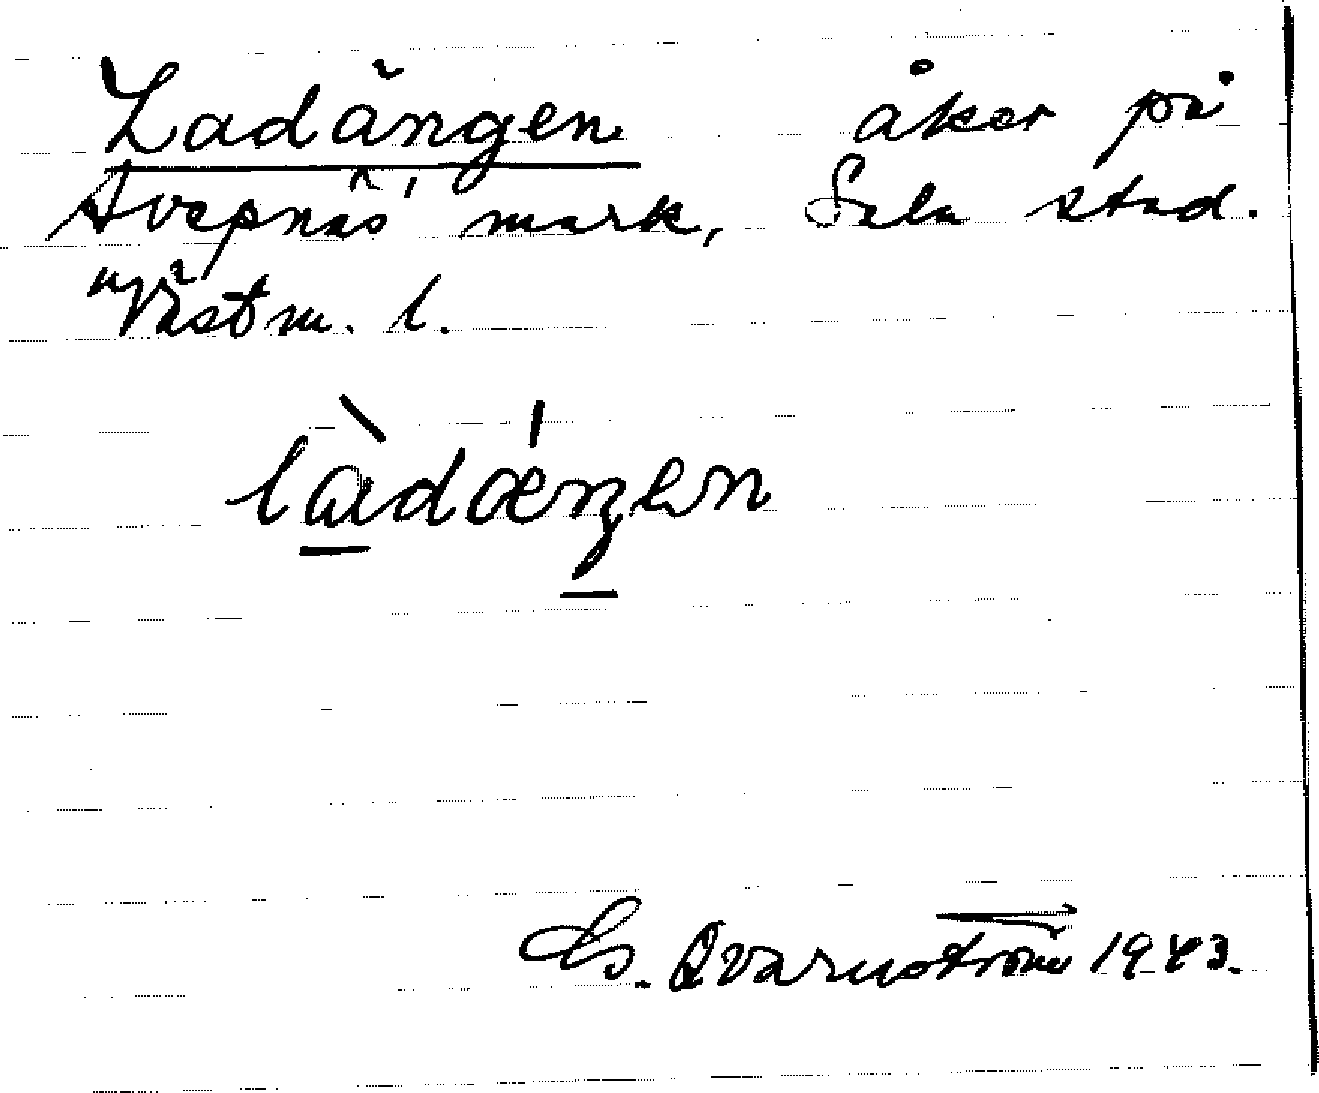 Ladängen åker på
Svepnäs' mark, Sala stad.
"Västm. l.
làdǽŋen
Es. Qvarnström 1943.